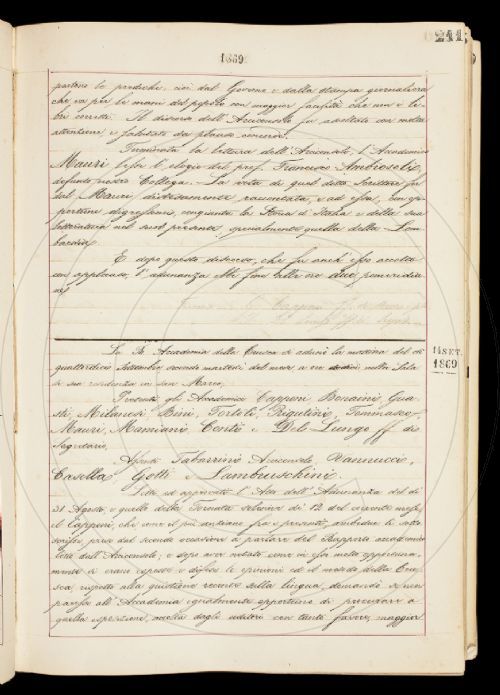 241
1869.
partano le prediche, cioè dal Governo e dalla stampa giornaliera
che va per le mani del popolo con maggior facilità che non i li-
bri corretti. Il discorso dell'Arciconsolo fu ascoltato con molta
attenzione e salutato da plauso concorde.
Terminata la lettura dell'Arciconsolo, l'Accademico
Mauri lesse l'elogio del prof. Francesco Ambrosoli,
defunto nostro Collega. La vita di quel dotto Scrittore fu
dal Mauri distesamente raccontata, e ad essa, con op-
portune digressioni, congiunta la Storia d'Italia e della sua
letteratura nel secol presente, specialmente quella della Lom
bardia.
E dopo questo discorso, che fu anch'esso accolto
con applauso, l'adunanza ebbe fine alle ore due pomeridia
ne.
14 SET.
1869
La R. Accademia della Crusca si adunò la mattina del dì
quattordici Settembre, secondo martedì del mese a ore dodici nella Sala
di sua residenza in San Marco.
Presenti gli Accademici Capponi, Bonaini, Gua
sti, Milanesi, Bini, Tortoli, Rigutini, Tommaseo,
Mauri, Mamiani, Conti e Del Lungo ff di
Segretario.
Assenti Tabarrini Arciconsolo, Vannucci,
Casella, Gotti e Lambruschini.
Letti ed approvati l'Atto dell'Adunanza del dì
31 Agosto, e quello della Tornata solenne di 12 del corrente mese,
il Capponi, che come il più anziano fra i presenti, ambedue li sotto
scrisse, prese dal secondo occasione a parlare del Rapporto accademico
letto dall'Arciconsolo; e dopo aver notato come in esso molto opportuna
mente si erano esposte e difese le opinioni ed il metodo della Cru
sca, rispetto alla questione recente sulla lingua, domandò se non
paresse all'Accademia egualmente opportuno di procurare a
quella esposizione, accolta dagli uditori con tanto favore, maggior